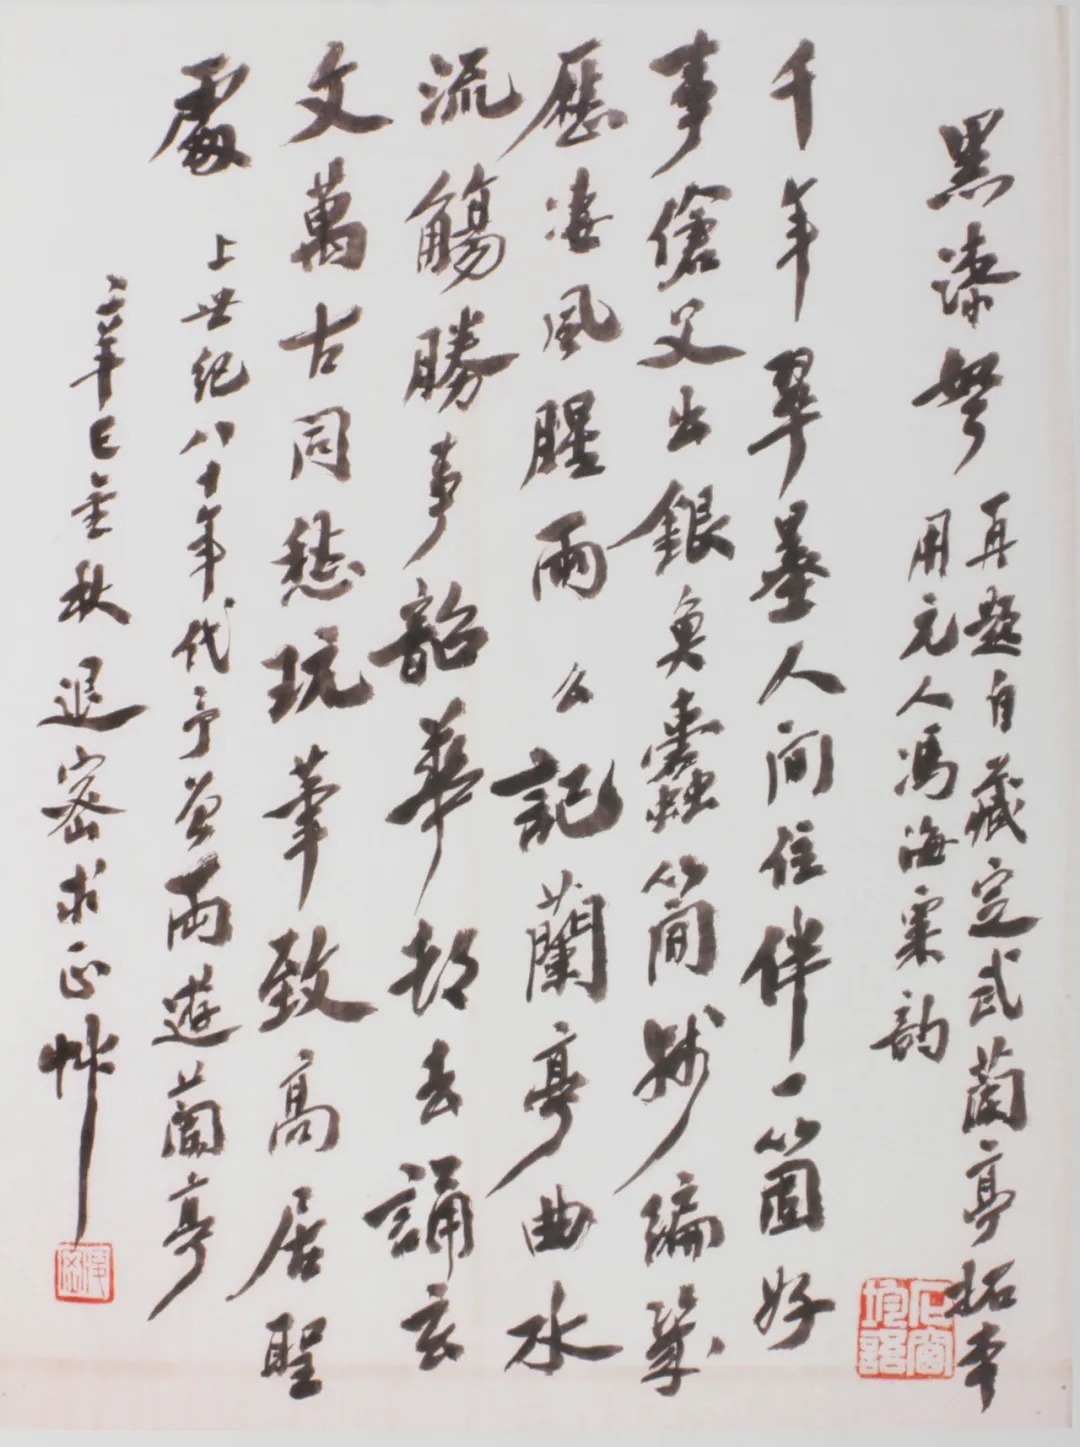 黑漆弩
再題自藏定武蘭亭拓本
用元人馮海粟韵
千年翠墨人间住伴一箇好
事傖父出銀魚蠹簡殘編幾
歷凄風腥雨 么記蘭亭曲水
流觴勝事韶華却去誦玄
文萬古同愁玩筆致高居聖
處
上世纪八十年代予曾兩遊蘭亭
辛巳金秋退密求正艸
退密
石窗